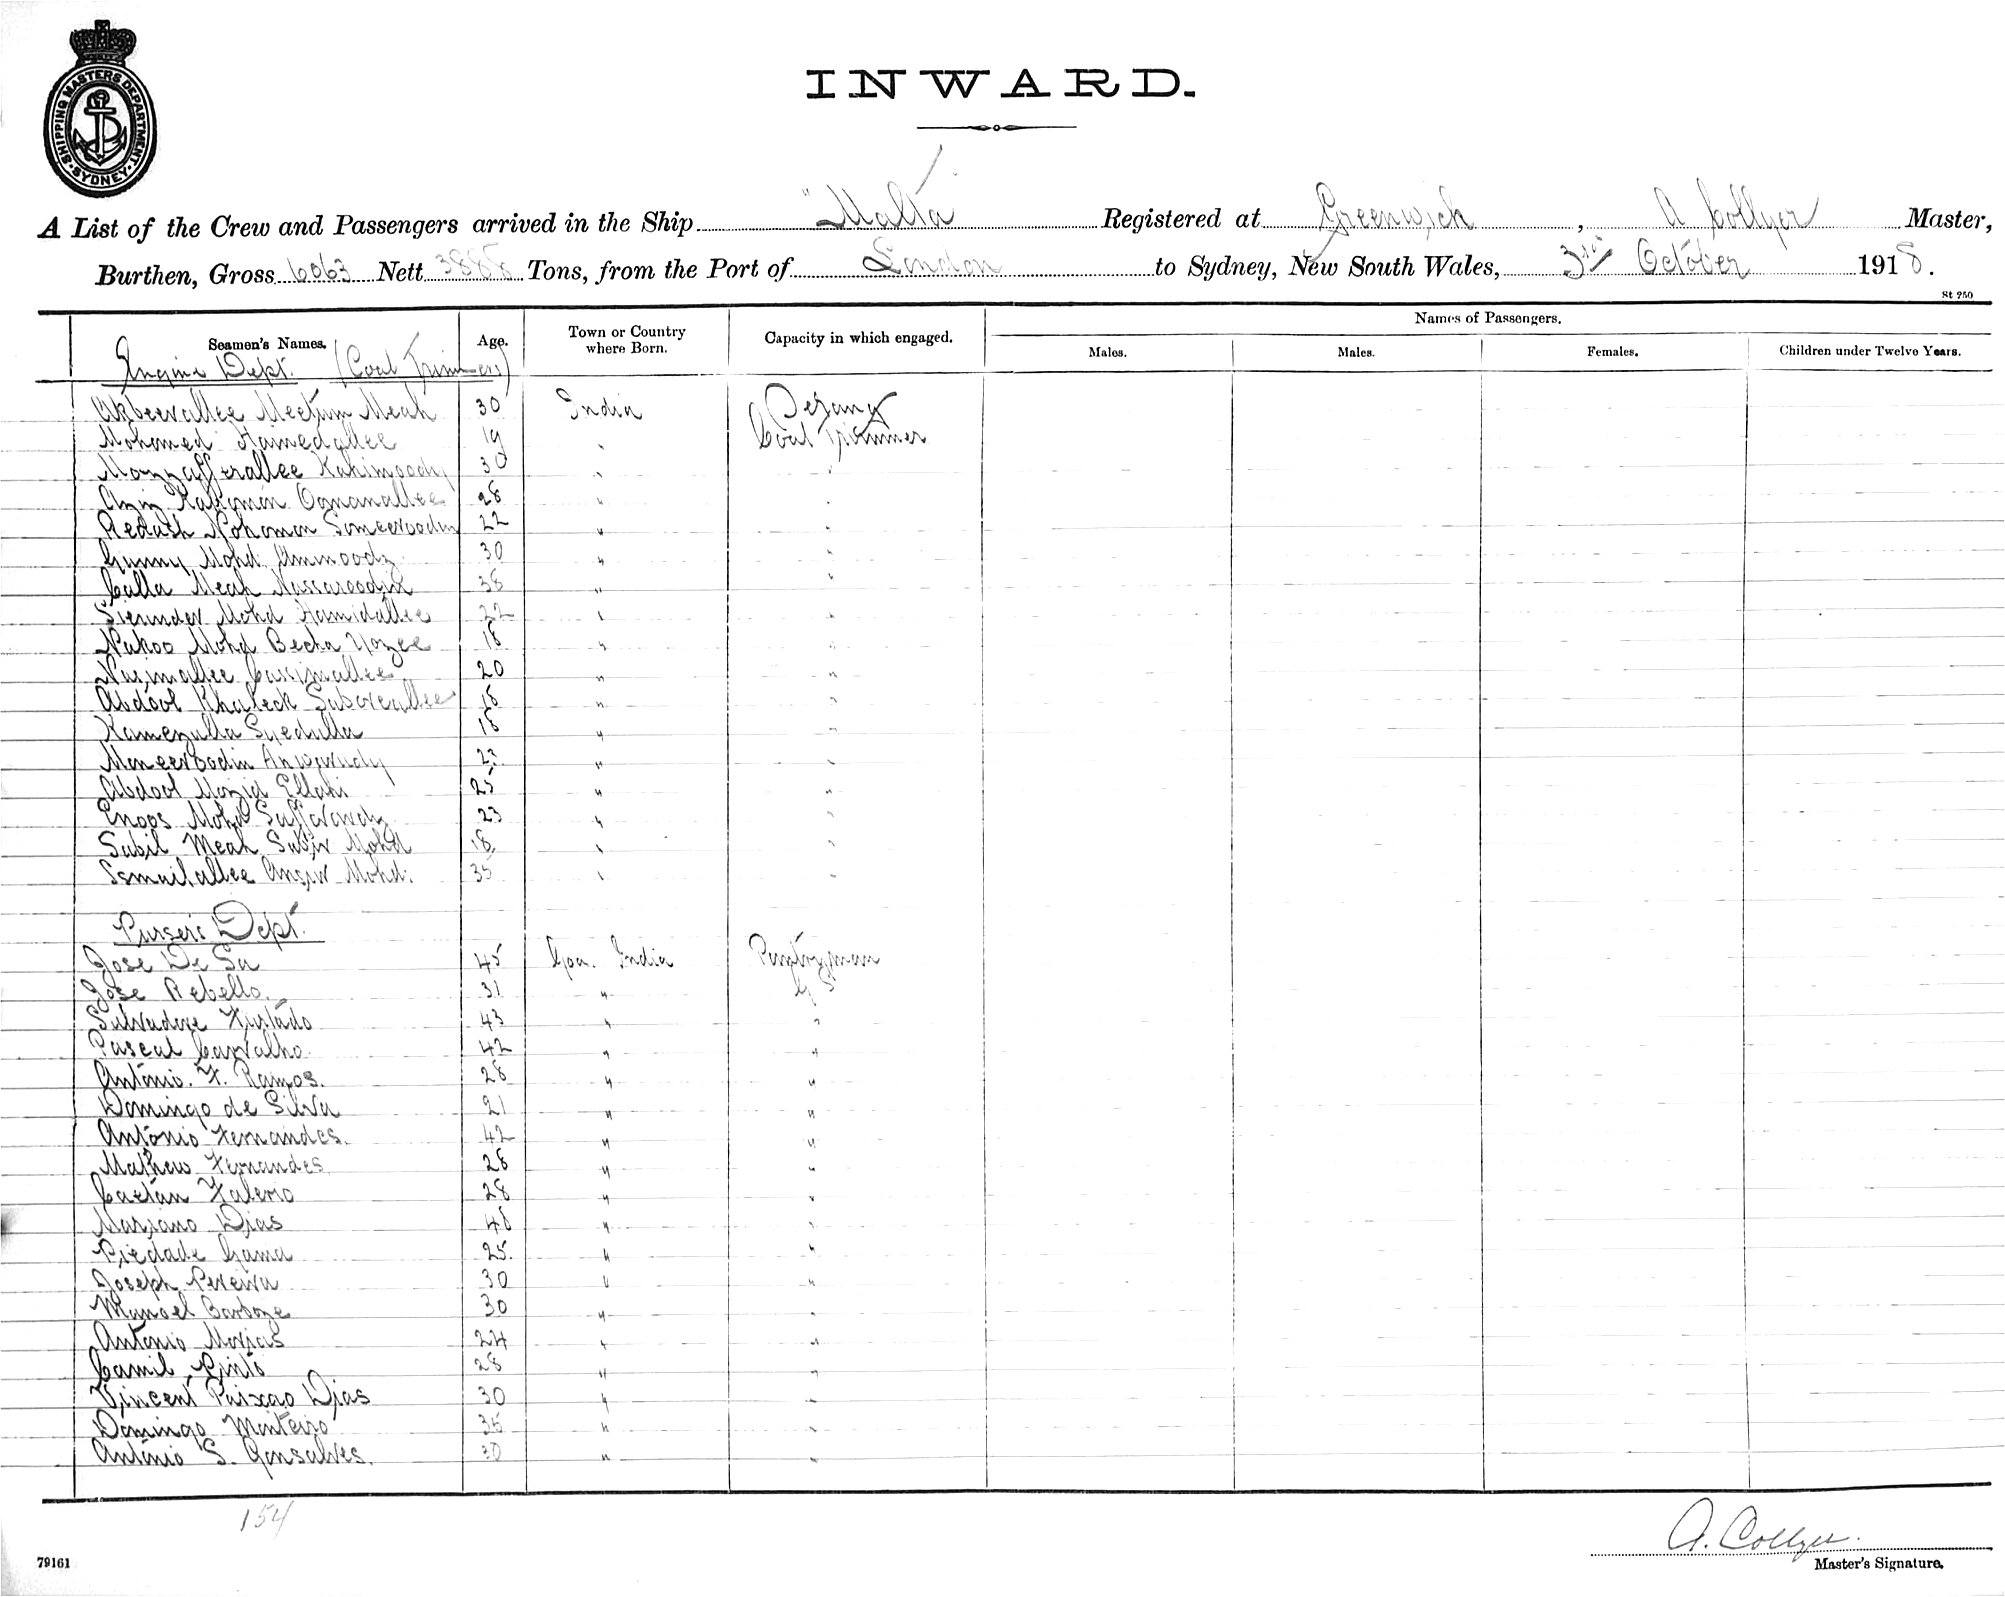 SHIPPING MASTERS DEPARTMENT
SYDNEY
INWARD.
A List of the Crew and Passengers arrived in the Ship "Malta" Registered at Greenwich, A Collyer Master,
Burthen, Gross 6063 Nett 3888 Tons, from the Port of London to Sydney, New South Wales, October 1918.
St 250
Seamen's Names. Age. Town or Country where Born. Capacity in which engaged. Names of Passengers.
Males. Males. Females. Children under Twelve Years.
Engine Dept. (Coal Trimmers)
Akbeerallee Meah 30 India Serang
Mohomed Hamedallee 19 " Coal Trimmer
Mozzafferallee 30 " "
Osmanallee 28 " "
22 " "
Gunny Mohd 30 " "
Calla Meah Nassaroodin 38 " "
Mohd Hamidallee 22 " "
Nakoo Mohd Becha 18 " "
Nasimallee Cassimallee 20 " "
Abdool Khaleck 18 " "
Kamezulla Syedulla 18 " "
Moneeroodin " "
Abdool Mozid Ellahi 25 " "
Enoos Mohd 23 " "
Sabil Meah Sabir Mohd 18 " "
Ismailallee Ansir Mohd. 35 " "
Purser's Dept.
Jose De Sa 45 Goa. India Pantryman
Jose Rebello. 31 " G S
Salvadore Furtado 43 " "
Pascal Carvalho. 42 " "
Antonio. F. Ramos. 28 " "
Domingo de Silva 21 " "
Antonio Fernandes. 42 " "
Mathew Fernandes 28 " "
Caetan Falerio 28 " "
Mariano Dias 48 " "
Piedade Gama 25. " "
Joseph Pereira 30 " "
Manoel Barboze 30 " "
Antonio 24 " "
Camil Pinto 28 " "
Vincent Paixao Dias 30 " "
Domingo Monteiro 35 " "
Antonio S. Gonsalves. 30 " "
154
A. Collyer.
79161
Master's Signature.